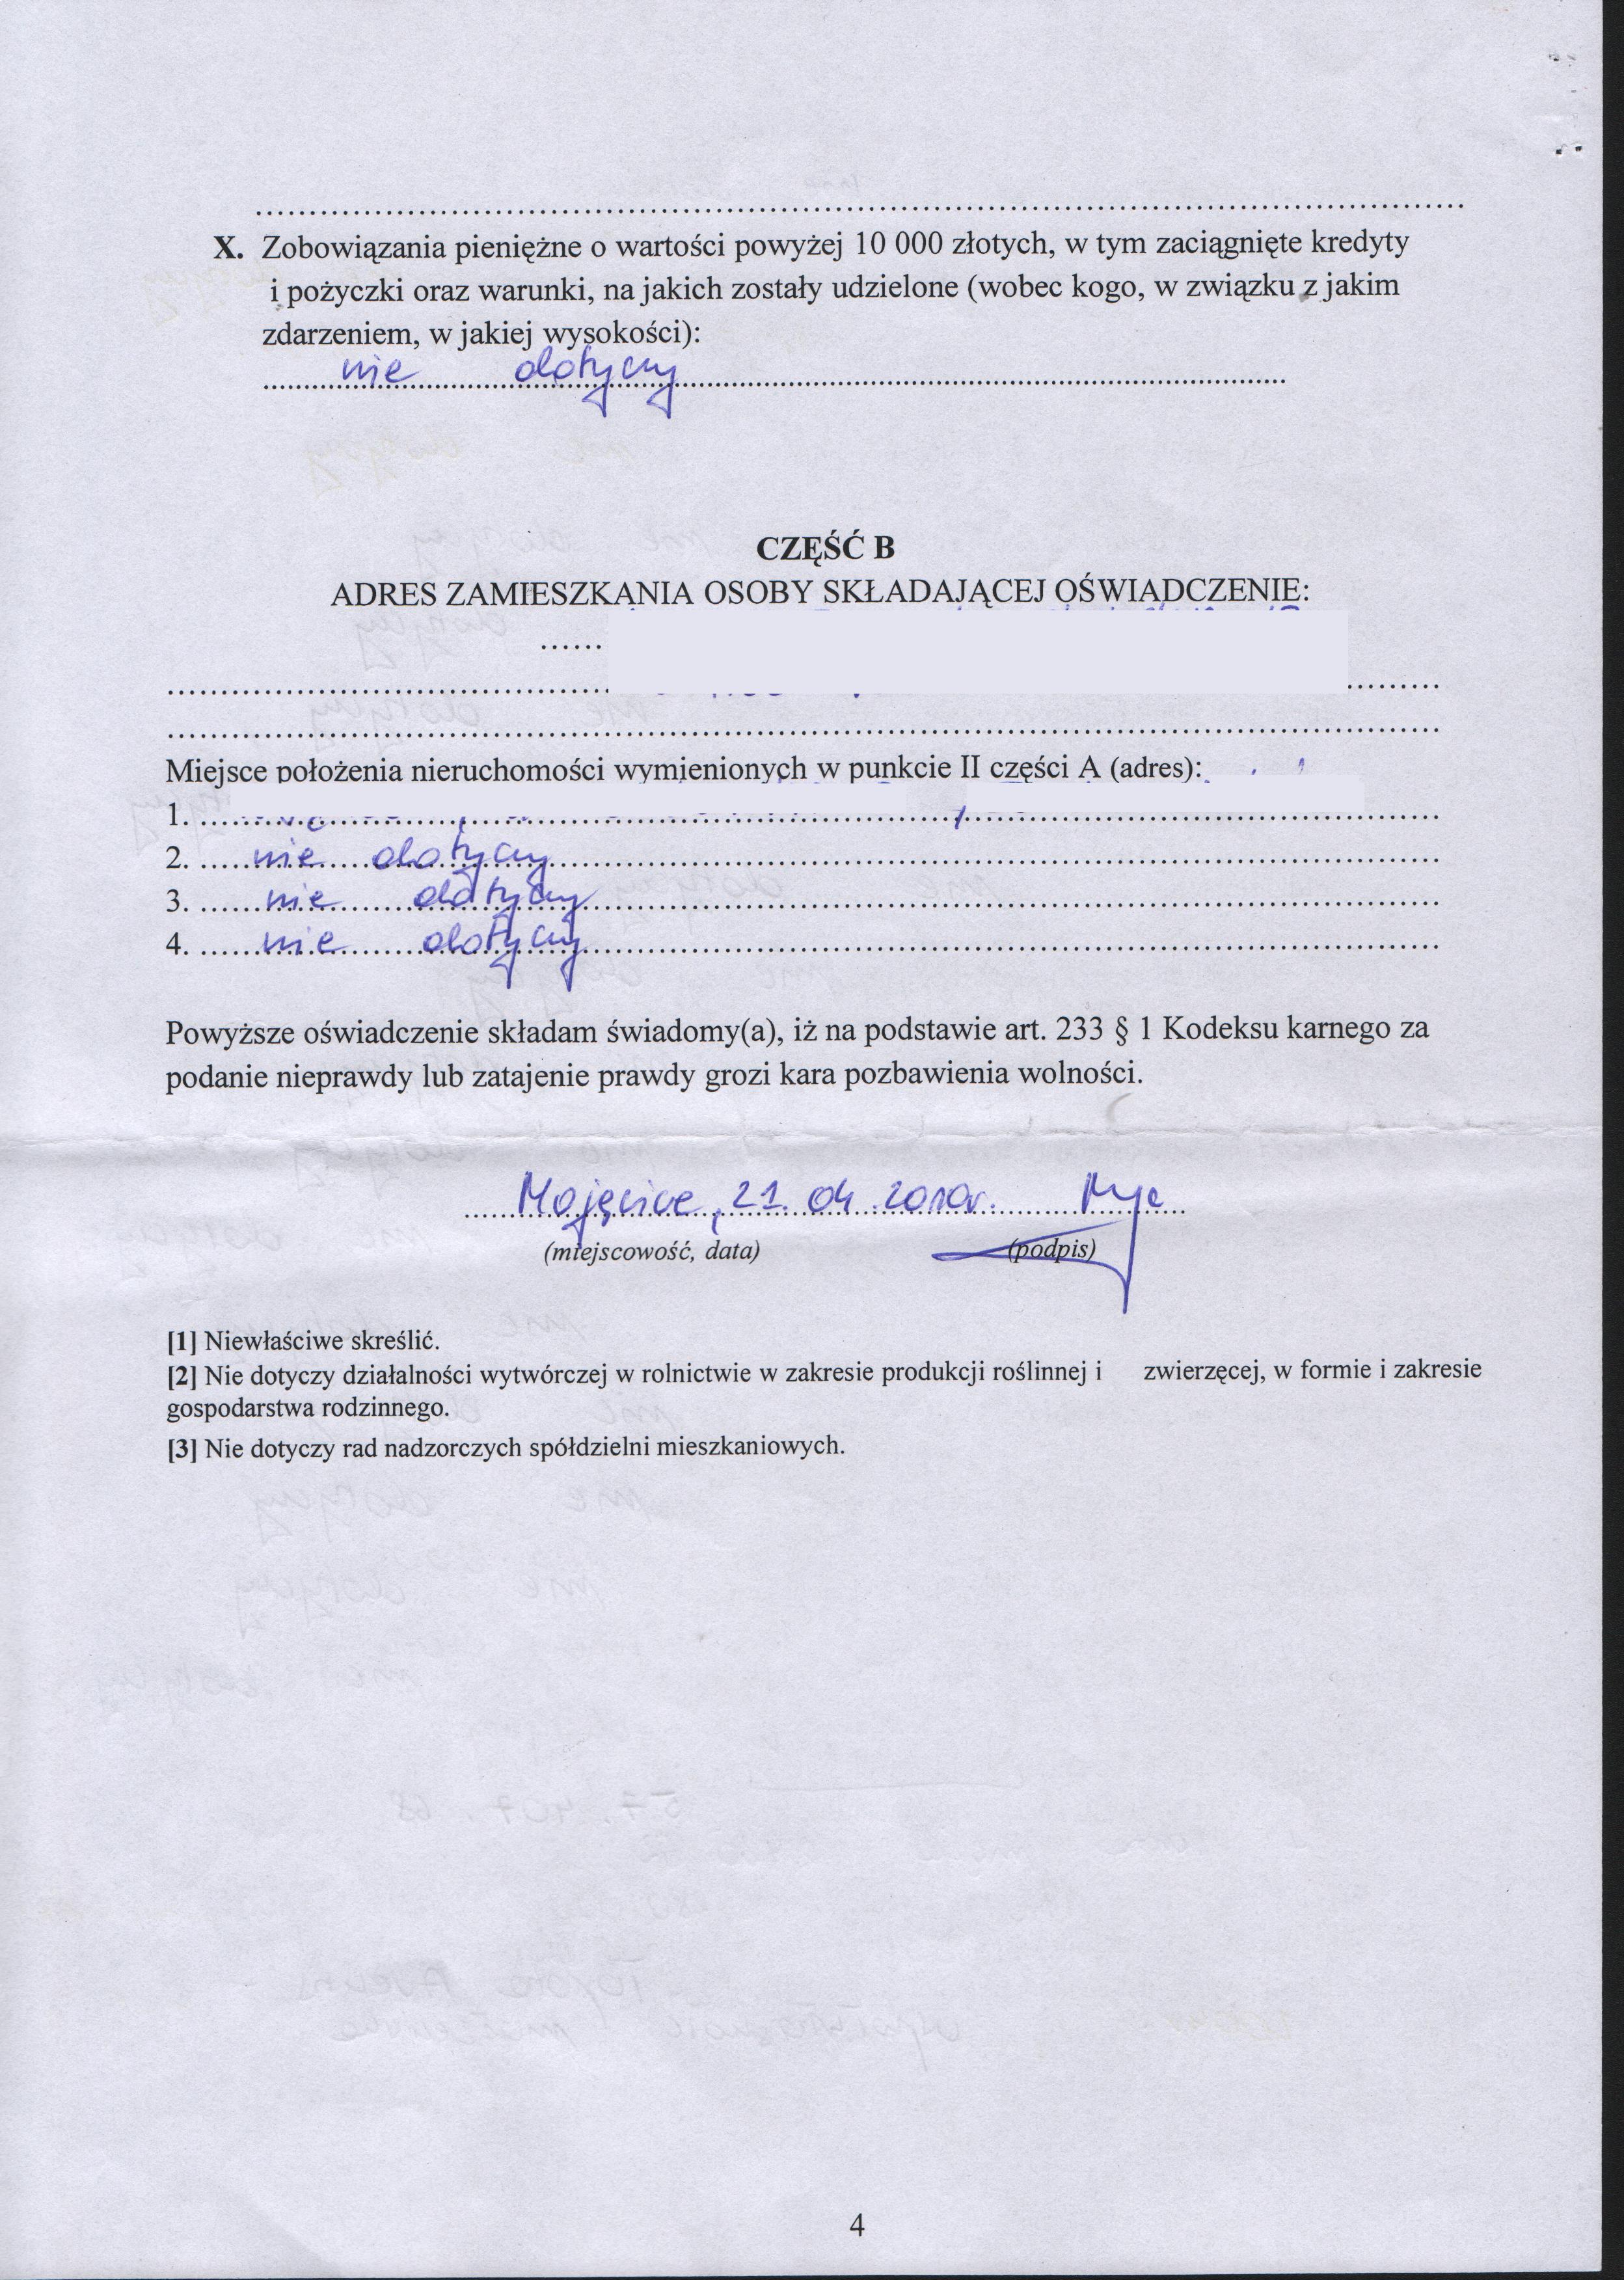 X. Zobowiązania pieniężne o wartości powyżej 10 000 złotych, w tym zaciągnięte kredyty
i pożyczki oraz warunki, na jakich zostały udzielone (wobec kogo, w związku z jakim
zdarzeniem, w jakiej wysokości):
nie dotyczy
CZĘŚĆ B
ADRES ZAMIESZKANIA OSOBY SKŁADAJĄCEJ OŚWIADCZENIE:
Miejsce położenia nieruchomości wymienionych w punkcie II części A (adres):
1.
2. nie dotyczy
3. nie dotyczy
4. nie dotyczy
Powyższe oświadczenie składam świadomy(a), iż na podstawie art. 233 § 1 Kodeksu karnego za
podanie nieprawdy lub zatajenie prawdy grozi kara pozbawienia wolności.
Mojęcice, 21.04.2010r.
(miejscowość, data) (podpis)
[1] Niewłaściwe skreślić.
[2] Nie dotyczy działalności wytwórczej w rolnictwie w zakresie produkcji roślinnej i zwierzęcej, w formie i zakresie
gospodarstwa rodzinnego.
[3] Nie dotyczy rad nadzorczych spółdzielni mieszkaniowych.
4